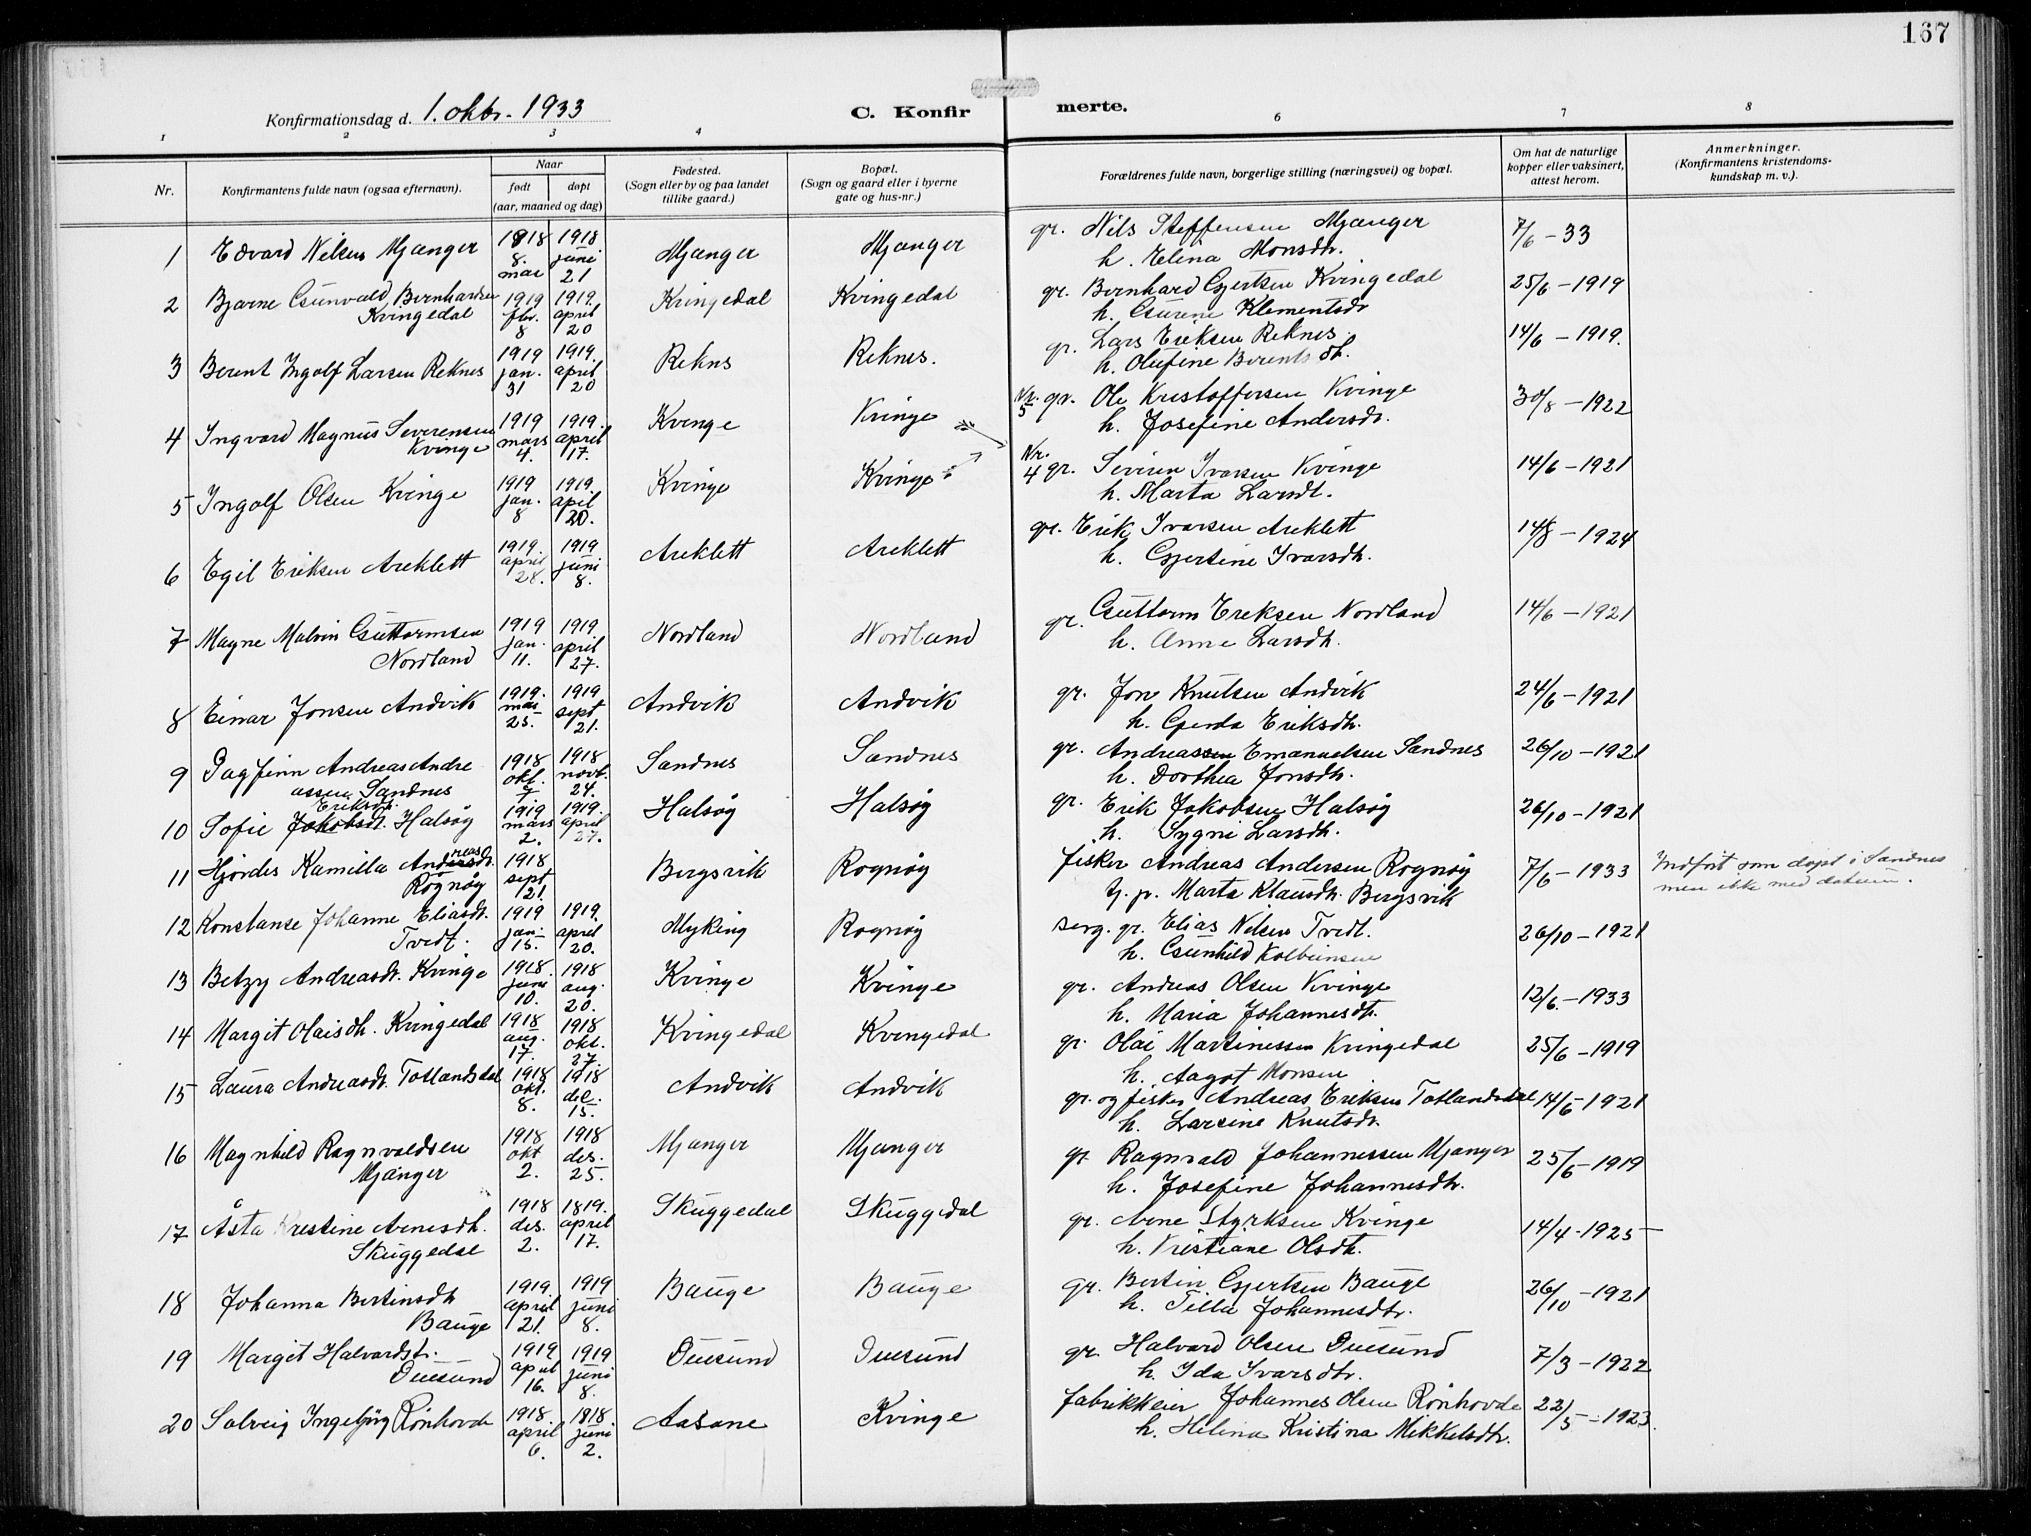 167
Konfirmationsdag d. 1. oktbr. 1933
C. Konfirmerte.
1 2 3 4 5 6 7 8
Nr.
Konfirmantens fulde navn (ogsaa efternavn).
Naar
født
døpt
(aar, maaned og dag)
Fødested.
(Sogn eller by og paa landet
tillike gaard.)
Bopæl.
(Sogn og gaard eller i byerne
gate og hus-nr.)
Forældrenes fulde navn, borgerlige stilling (næringsvei) og bopæl.
Om hat de naturlige
kopper eller vaksinert,
attest herom.
Anmerkninger.
(Konfirmantens kristendoms-
kundskap m. v.).
1 Edvard Nilsen Mjanger 1918 8. mai 1918 juni 21 Mjanger Mjanger gr. Nils Steffensen Mjanger 7/6 - 33
h. Elina Monsdtr.
2 Bjarne Gunvald Bernhardsen 1919 fbr. 8 1919. april 20 Kvingedal Kvingedal gr. Bernhard Gjertsen Kvingedal 25/6 - 1919
Kvingedal h. Gurine Klementsdr
3 Berent Ingolf Larsen Reknes 1919 jan. 31 1919. april 20 Rekns Reknes. gr. Lars Eriksen Reknes. 14/6 - 1919.
h. Olufine Berentsdt.
4 Ingvard Magnus Severensen 1919 mars 4. 1919. april 17. Kvinge Kvinge Nr. 5 gr. Ole Kristoffersen Kvinge 30/8 - 1922
Kvinge h. Josefine Andersdr.
5 Ingolf Olsen Kvinge 1919 jan. 8 1919. april 20. Kvinge Kvinge Nr. 4 gr. Severin Ivarsen Kvinge 14/6 - 1921
h. Marta Larsdt.
6 Egil Eriksen Areklett 1919. april 28. 1919 juni 8. Areklett Areklett gr. Erik Ivarsen Areklett 14/8 - 1924
h. Gjertine Ivarsdtr.
7 Magne Malvin Guttormsen 1919 jan. 11. 1919. april 27. Nordland Nordland gr. Guttorm Eriksen Nordland 14/6 - 1921
Nordland h. Anne Larsdtr.
8 Einar Jonsen Andvik 1919. mai 25. 1919 sept 21. Andvik Andvik gr. Jon Knutsen Andvik 24/6 - 1921
h. Gjerda Eriksdtr.
9 Dagfinn Andreas Andre 1918 okt. 7 1918 novb. 24. Sandnes Sandnes gr. Andreassen Emanuelsen Sandnes 26/10 - 1921
assen Sandnes h. Dorthea Jonsdtr.
Eriksdt.
10 Sofie Jakobsdt. Halsøy 1919 mars 2. 1919. april 27. Halsøy Halsøy gr. Erik Jakobsen Halsøy 26/10 - 1921
h. Sygni Larsdtr.
11 Hjørdis Kamilla Andreasdt. 1918 sept 21. Bergsvik Rognøy fisker Andreas Andersen Rognøy 7/6 - 1933 Indført som døpt i Sandnes
Rognøy p. Marta Klausdtr. Bergsvik men ikke med datum.
12 Konstanse Johanne Eliasdt. 1919 jan. 15. 1919. april 20. Myking Rognøy serg. gr. Elias Nelsen Tvedt. 26/10 - 1921
Tvedt. h. Gunhild Kolbeinsen
13 Betzy Andreasdt. Kvinge 1918. juni 10. 1918 aug. 20. Kvinge Kvinge gr. Andreas Olsen Kvinge 12/6. - 1933
h. Maria Johannesdtr.
14 Margit Olaisdtr. Kvingedal 1918 aug. 17. 1918 okt. 27. Kvingedal Kvingedal gr. Olai Martinessen Kvingedal 25/6 - 1919
h. Aagot Monsen
15 Laura Andreasdt. Totlandsdal 1918 okt. 8. 1918 des. 15. Andvik Andvik gr. og fisker Andreas Eriksen Totlandsdal 14/6 - 1921
h. Larsine Knutsdr.
16 Magnhild Ragnvaldsen 1918 okt 2. 1918 des. 25. Mjanger Mjanger gr. Ragnvald Johannessen Mjanger 25/6 - 1919
Mjanger h. Josefine Johannesdtr.
17 Åsta Kristine Arnesdtr. 1918 des. 2. 1819. april 17. Skuggedal Skuggedal gr. Arne Styrksen Kvinge 14/4 - 1925
Skuggedal h. Kristiane Olsdtr.
18 Johanna Bertinsdtr 1919. april 21. 1919 juni 8. Bauge Bauge gr. Bertin Gjertsen Bauge 26/10 - 1921
Bauge h. Tilla Johannesdtr.
19 Margit Halvardst. 1919 april 16. 1919 juni 8. Duesund Duesund gr. Halvard Olsen Duesund 7/3 - 1922
Duesund h. Ida Ivarsdtr.
20 Solveig Ingebjørg Rønhovde 1918. april 6. 1918. juni 2. Aasane Kvinge fabrikkeier Johannes Olsen Rønhovde 22/5 - 1923.
h. Helina Kristina Mikkelsdtr.